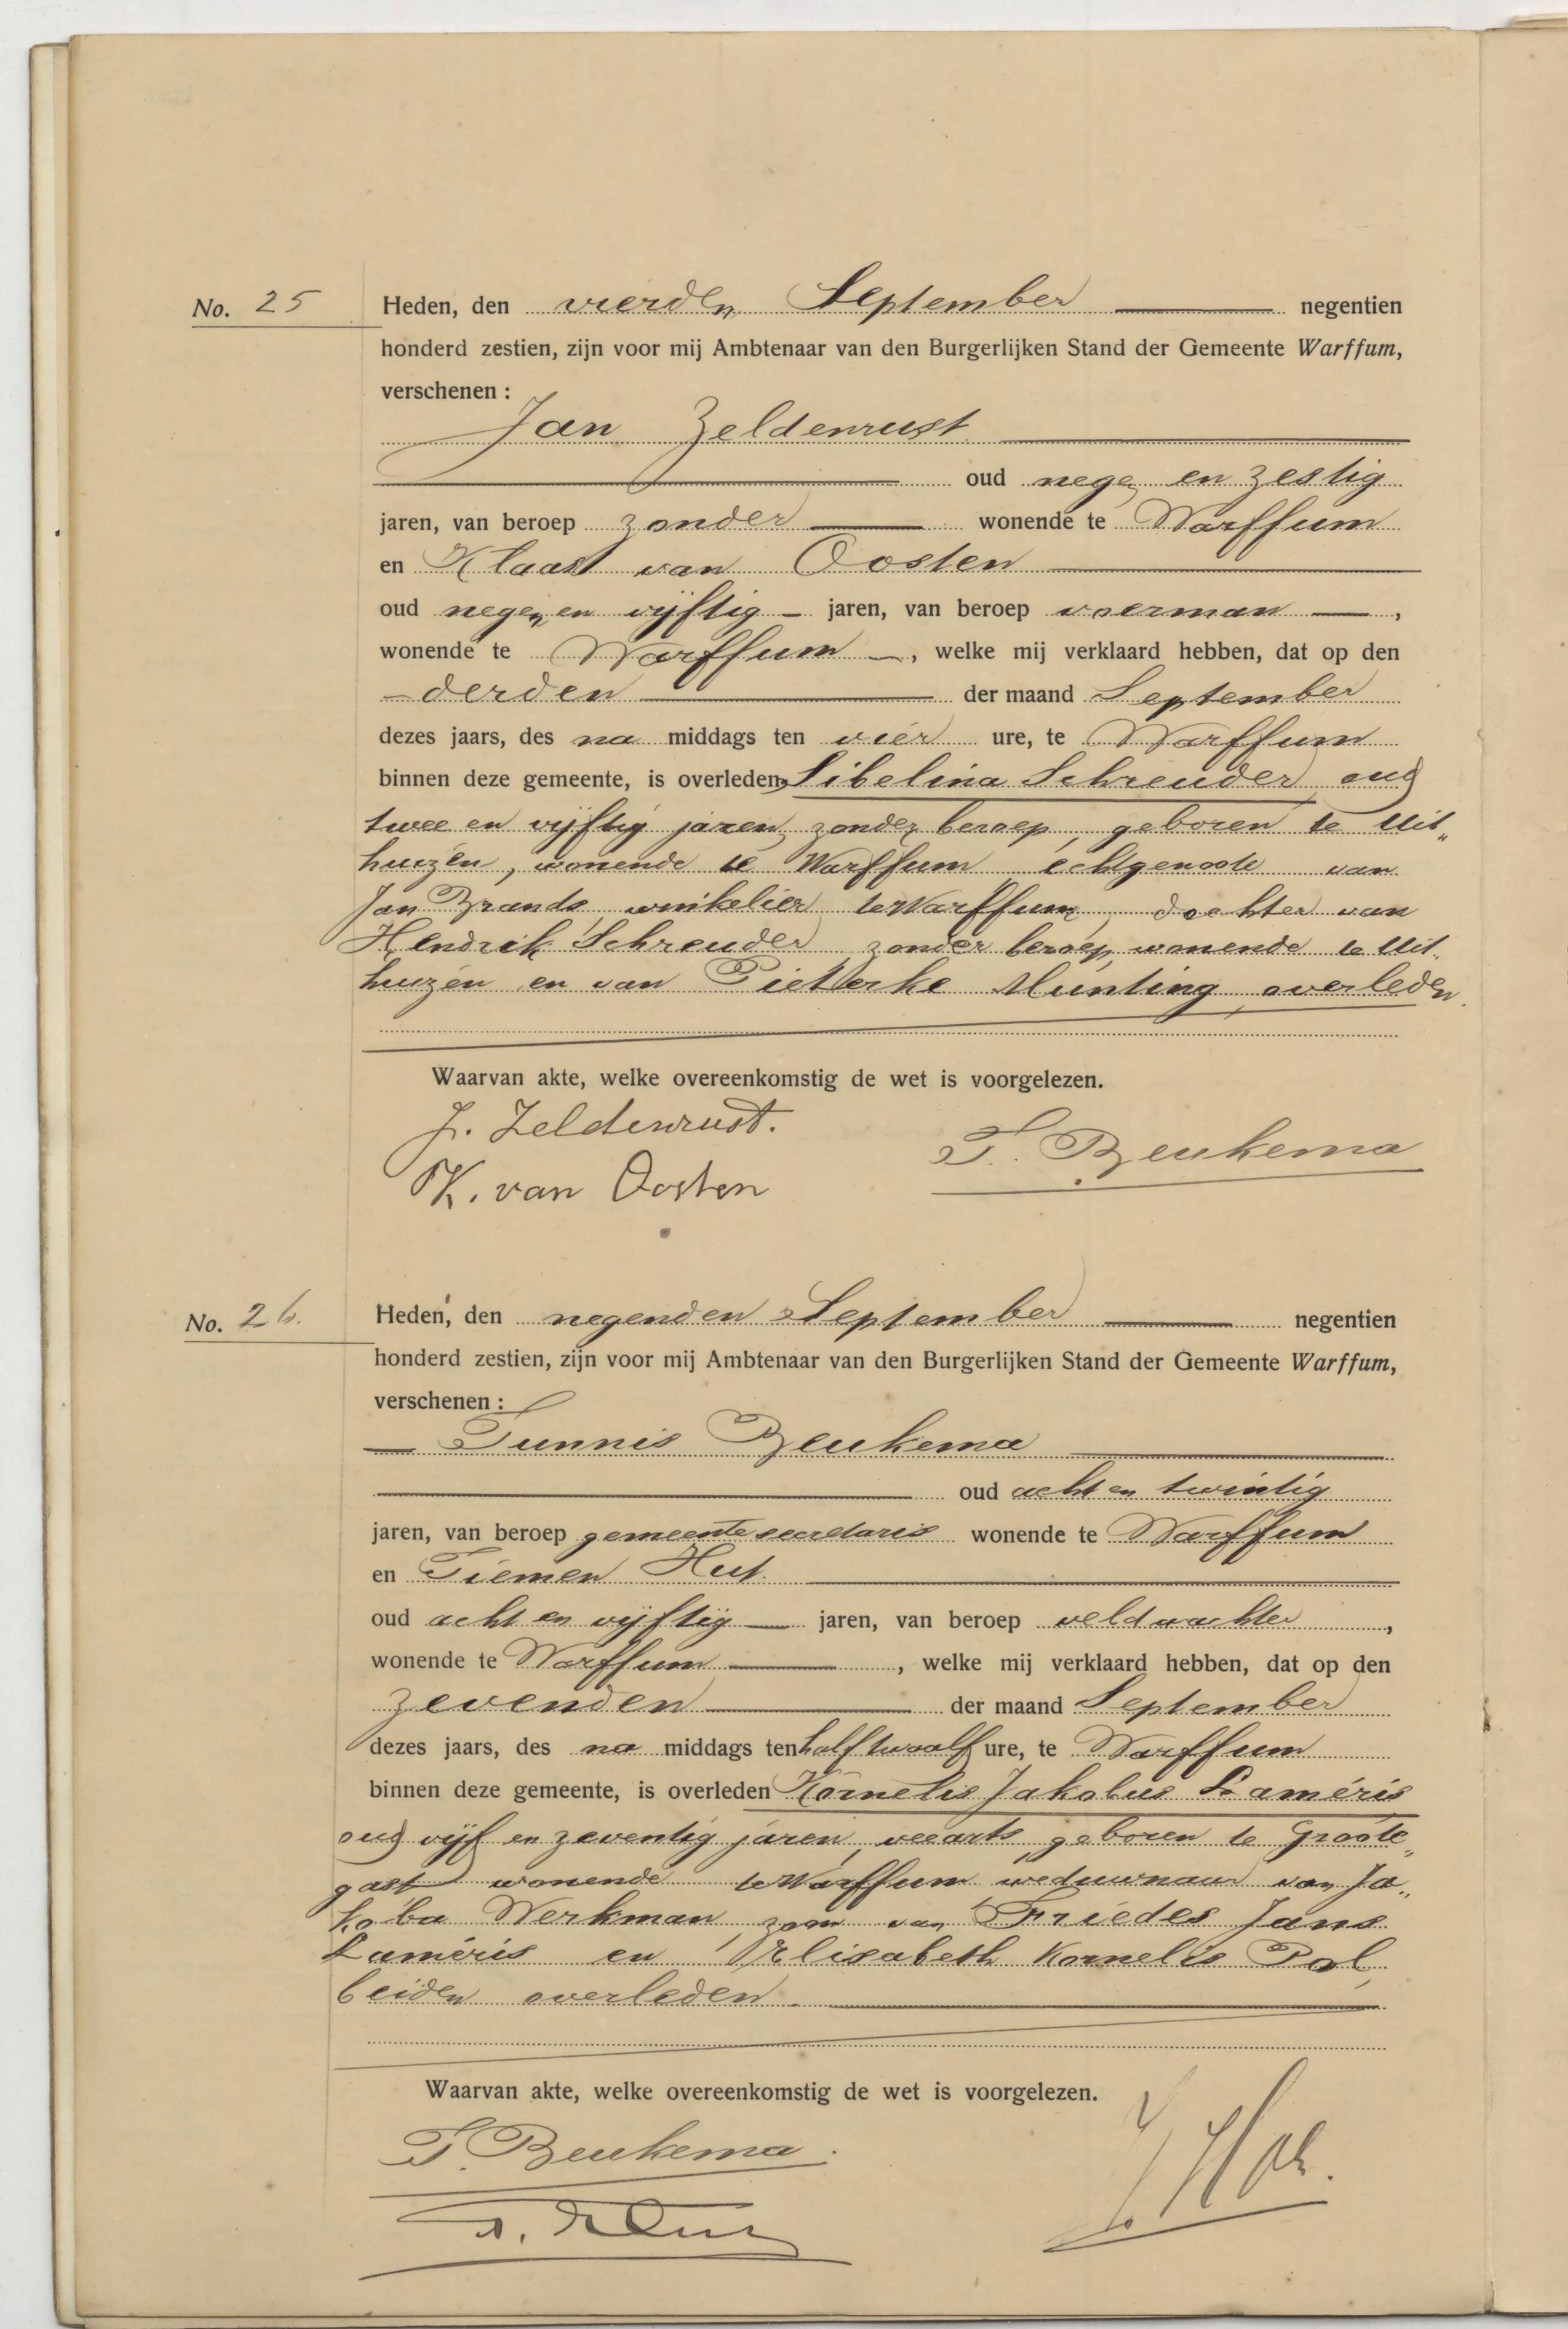 No. 25
Heden, den vierden September negentien
honderd zestien, zijn voor mij Ambtenaar van den Burgerlijken Stand der Gemeente Warffum,
verschenen :
Jan Zeldenrust
oud negen en zestig
jaren, van beroep zonder wonende te Warffum
en Klaas van Oosten
oud negen en vijftig — jaren, van beroep voerman — ,
wonende te Warffum —, welke mij verklaard hebben, dat op den
— derden der maand September
dezes jaars, des na middags ten vier ure, te Warffum
binnen deze gemeente, is overleden Sibelina Schreuder, oud
twee en vijftig jaren, zonder beroep, geboren te Uit„
huizen, wonende te Warffum echtgenoote van
Jan Brands, winkelier te Warffum, dochter van
Hendrik Schreuder, zonder beroep, wonende te Uit„
huizen en van Pieterke Munting, overleden.
Waarvan akte, welke overeenkomstig de wet is voorgelezen.
J. Zeldenrust.
T. Beukema
K. van Oosten
No. 26.
Heden, den negenden September negentien
honderd zestien, zijn voor mij Ambtenaar van den Burgerlijken Stand der Gemeente Warffum,
verschenen :
— Tunnis Beukema
oud acht en twintig
jaren, van beroep gemeentesecretaris wonende te Warffum
en Tiemen Hut
oud acht en vijftig — jaren, van beroep veldwachter ,
wonende te Warffum , welke mij verklaard hebben, dat op den
zevenden der maand September
dezes jaars, des na middags ten half twaalf ure, te Warffum
binnen deze gemeente, is overleden Kornelis Jakobus Laméris
oud vijf en zeventig jaren, veearts, geboren te Groote„
gast wonende te Warffum weduwnaar van Ja„
koba Werkman, zoon van Friedes Jans
Laméris en Elisabeth Kornelis Pol,
beiden overleden.
Waarvan akte, welke overeenkomstig de wet is voorgelezen.
T. Beukema.
T. Hut